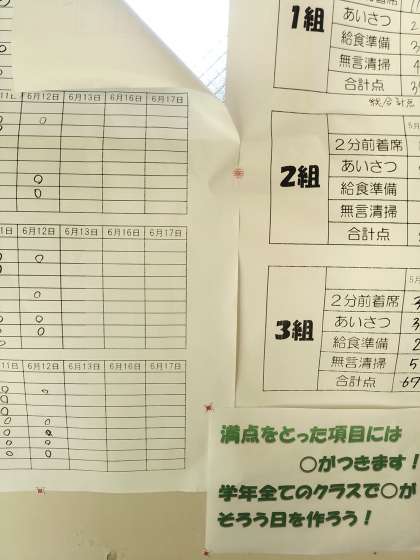 11日 6月12日 6月13日 6月16日 6月17日
○
○
○
11日 6月12日 6月13日 6月16日 6月17日
○
○
○
○
11日 6月12日 6月13日 6月16日 6月17日
○
○
○
○
○
1組
あいさつ
給食準備
無言清掃
合計点
総合計点
2組
2分前着席
あいさつ
給食準備
無言清掃
合計点
3組
2分前着席 3
あいさつ 3
給食準備 2
無言清掃 5
合計点 67
満点をとった項目には
○がつきます！
学年全てのクラスで○が
そろう日を作ろう！